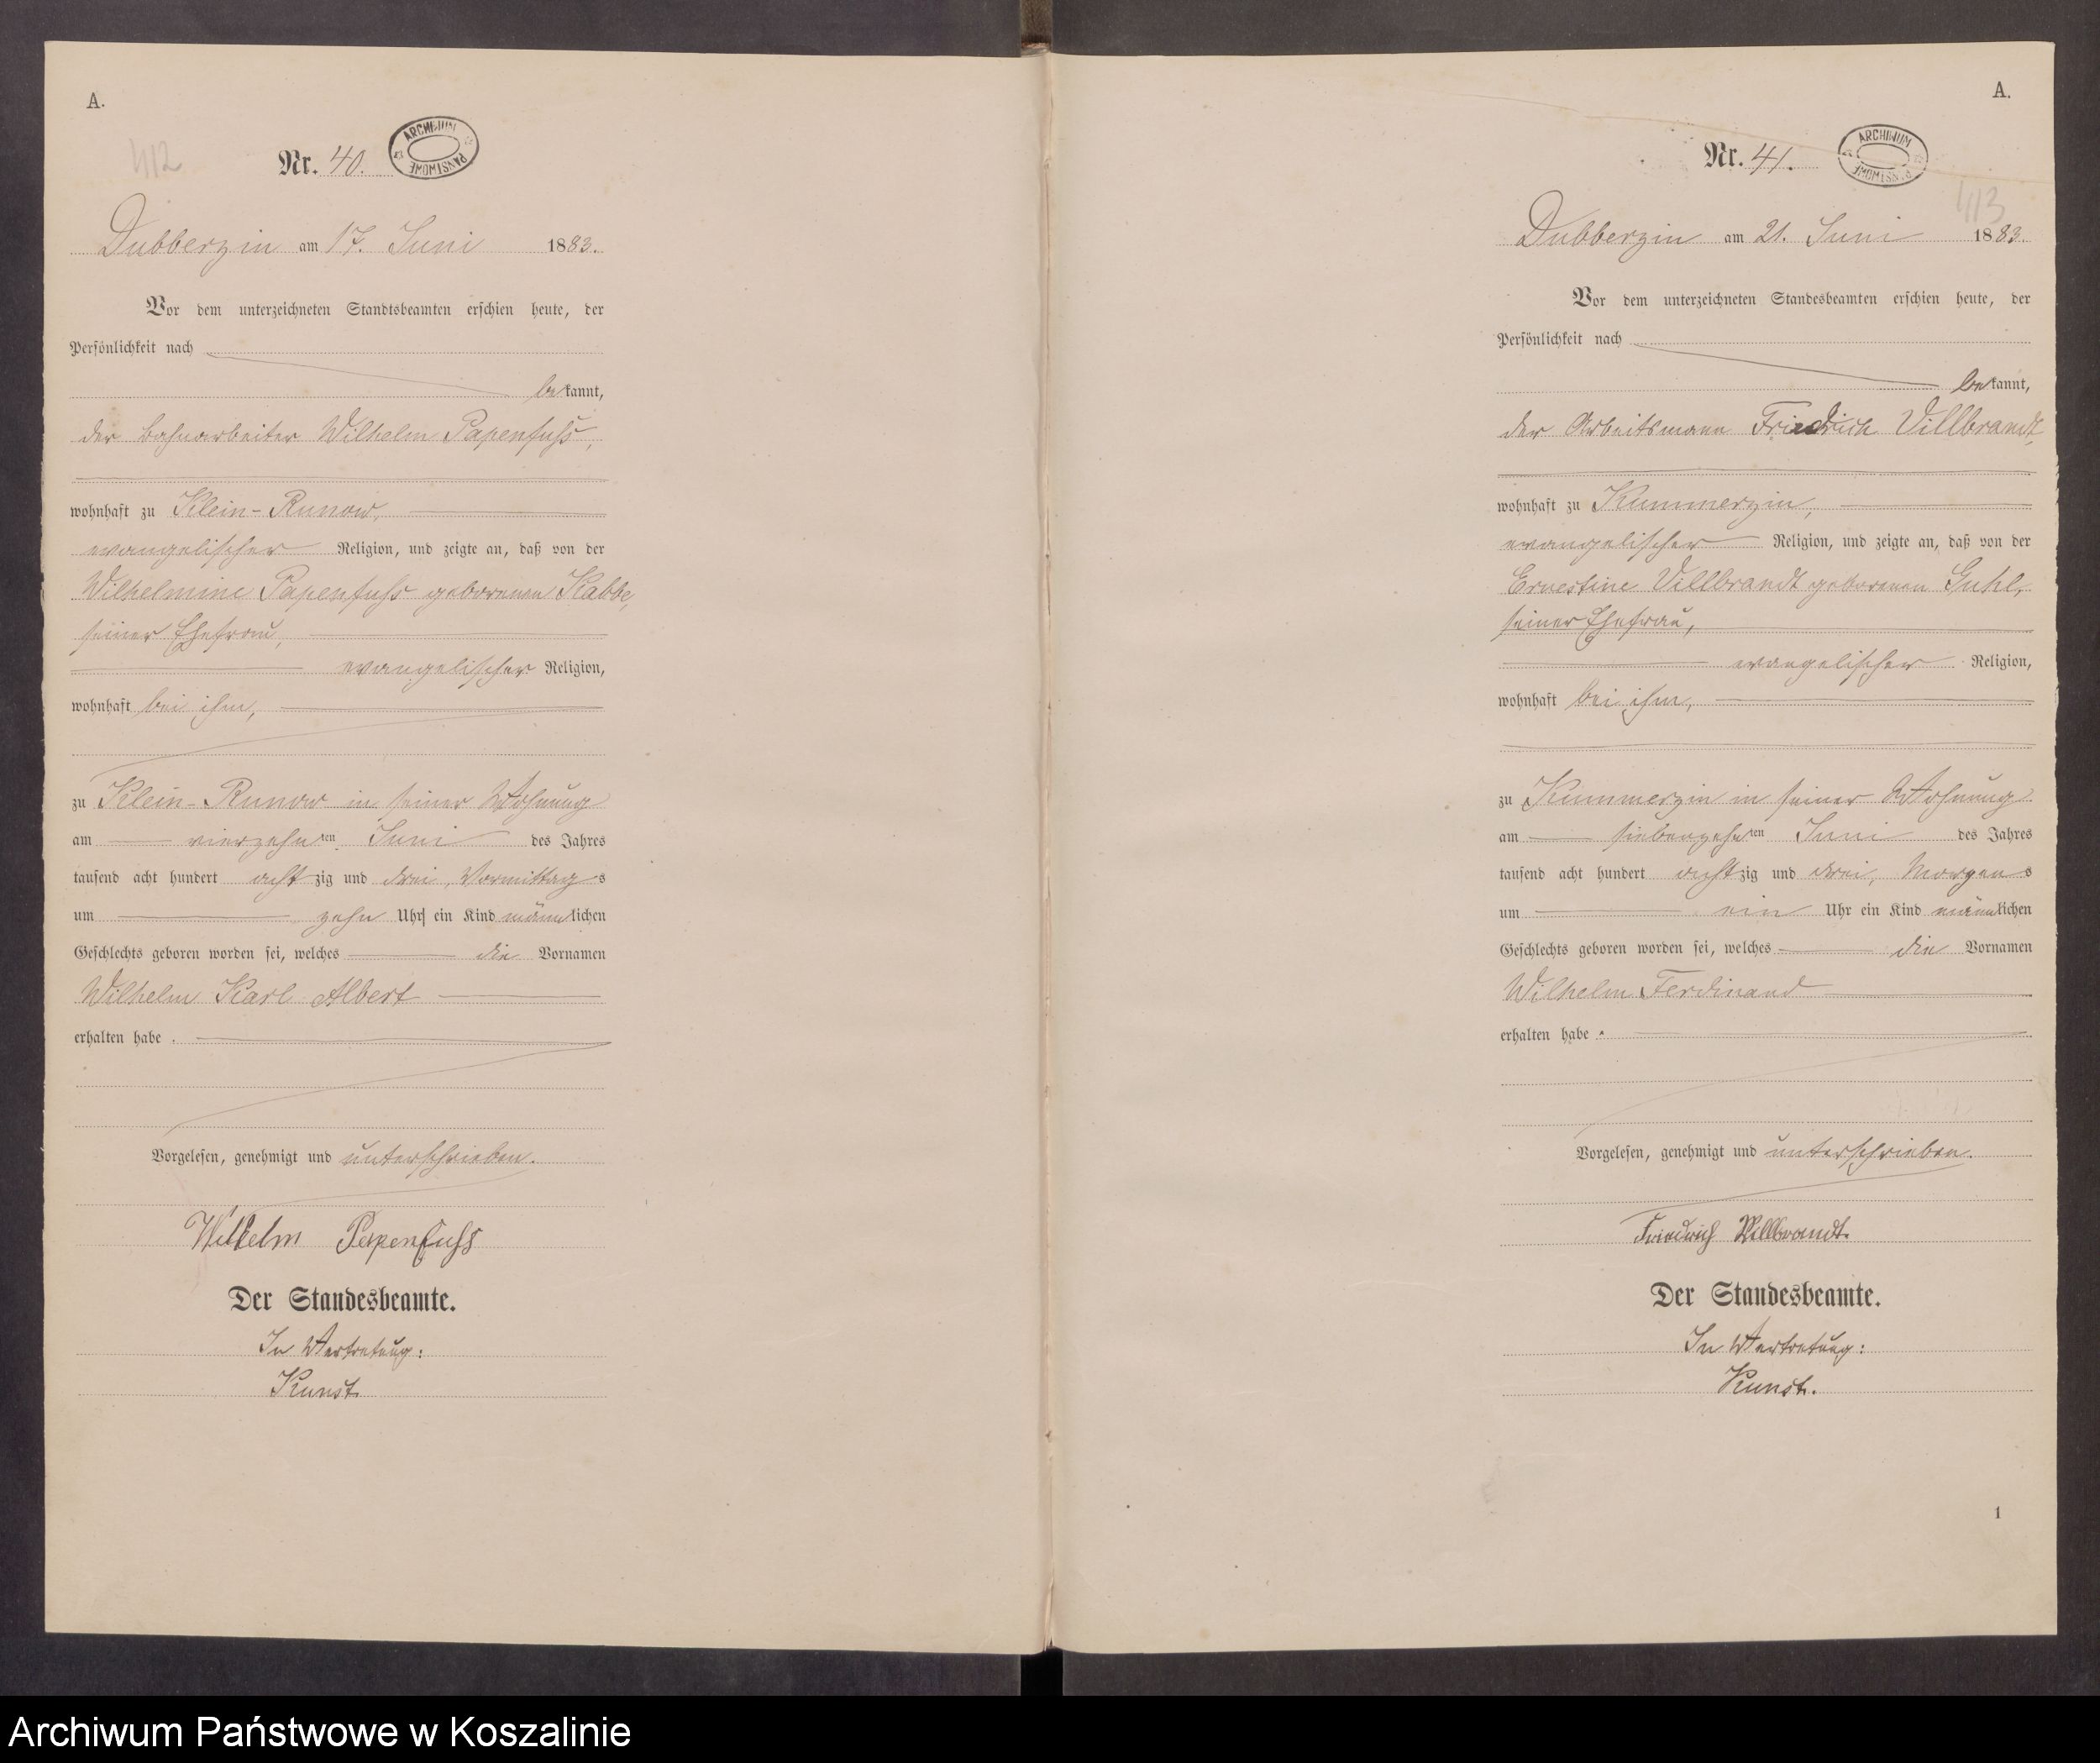 A.
412
Nr. 40.
ARCHIWUM PAŃSTWOWE
Dubberzin am 17. Juni 1883.
Vor dem unterzeichneten Standtsbeamten erschien heute, der
Persönlichkeit nach
bekannt,
der Bahnarbeiter Wilhelm Papenfuß,
wohnhaft zu Klein-Runow,
evangelischer Religion, und zeigte an, daß von der
Wilhelmine Papenfuß geborenen Kabbe,
seiner Ehefrau,
evangelischer Religion,
wohnhaft bei ihm,
zu Klein-Runow in seiner Wohnung
am vierzehnten Juni des Jahres
tausend acht hundert achtzig und drei, Vormittags
um zehn Uhr ein Kind männlichen
Geschlechts geboren worden sei, welches die Vornamen
Wilhelm Karl Albert
erhalten habe.
Vorgelesen, genehmigt und unterschrieben.
Wilhelm Papenfuß
Der Standesbeamte.
In Vertretung:
Kunst.
A.
Nr. 41.
ARCHIWUM PAŃSTWOWE
413
Dubberzin am 21. Juni 1883.
Vor dem unterzeichneten Standesbeamten erschien heute, der
Persönlichkeit nach
bekannt,
der Arbeitsmann Friedrich Villbrandt,
wohnhaft zu Kummerzin,
evangelischer Religion, und zeigte an, daß von der
Ernestine Villbrandt geborenen Guhl,
seiner Ehefrau,
evangelischer Religion,
wohnhaft bei ihm,
zu Kummerzin in seiner Wohnung
am siebenzehnten Juni des Jahres
tausend acht hundert achtzig und drei, Morgens
um ein Uhr ein Kind männlichen
Geschlechts geboren worden sei, welches die Vornamen
Wilhelm Ferdinand
erhalten habe.
Vorgelesen, genehmigt und unterschrieben.
Friedrich Villbrandt.
Der Standesbeamte.
In Vertretung:
Kunst.
1
Archiwum Państwowe w Koszalinie